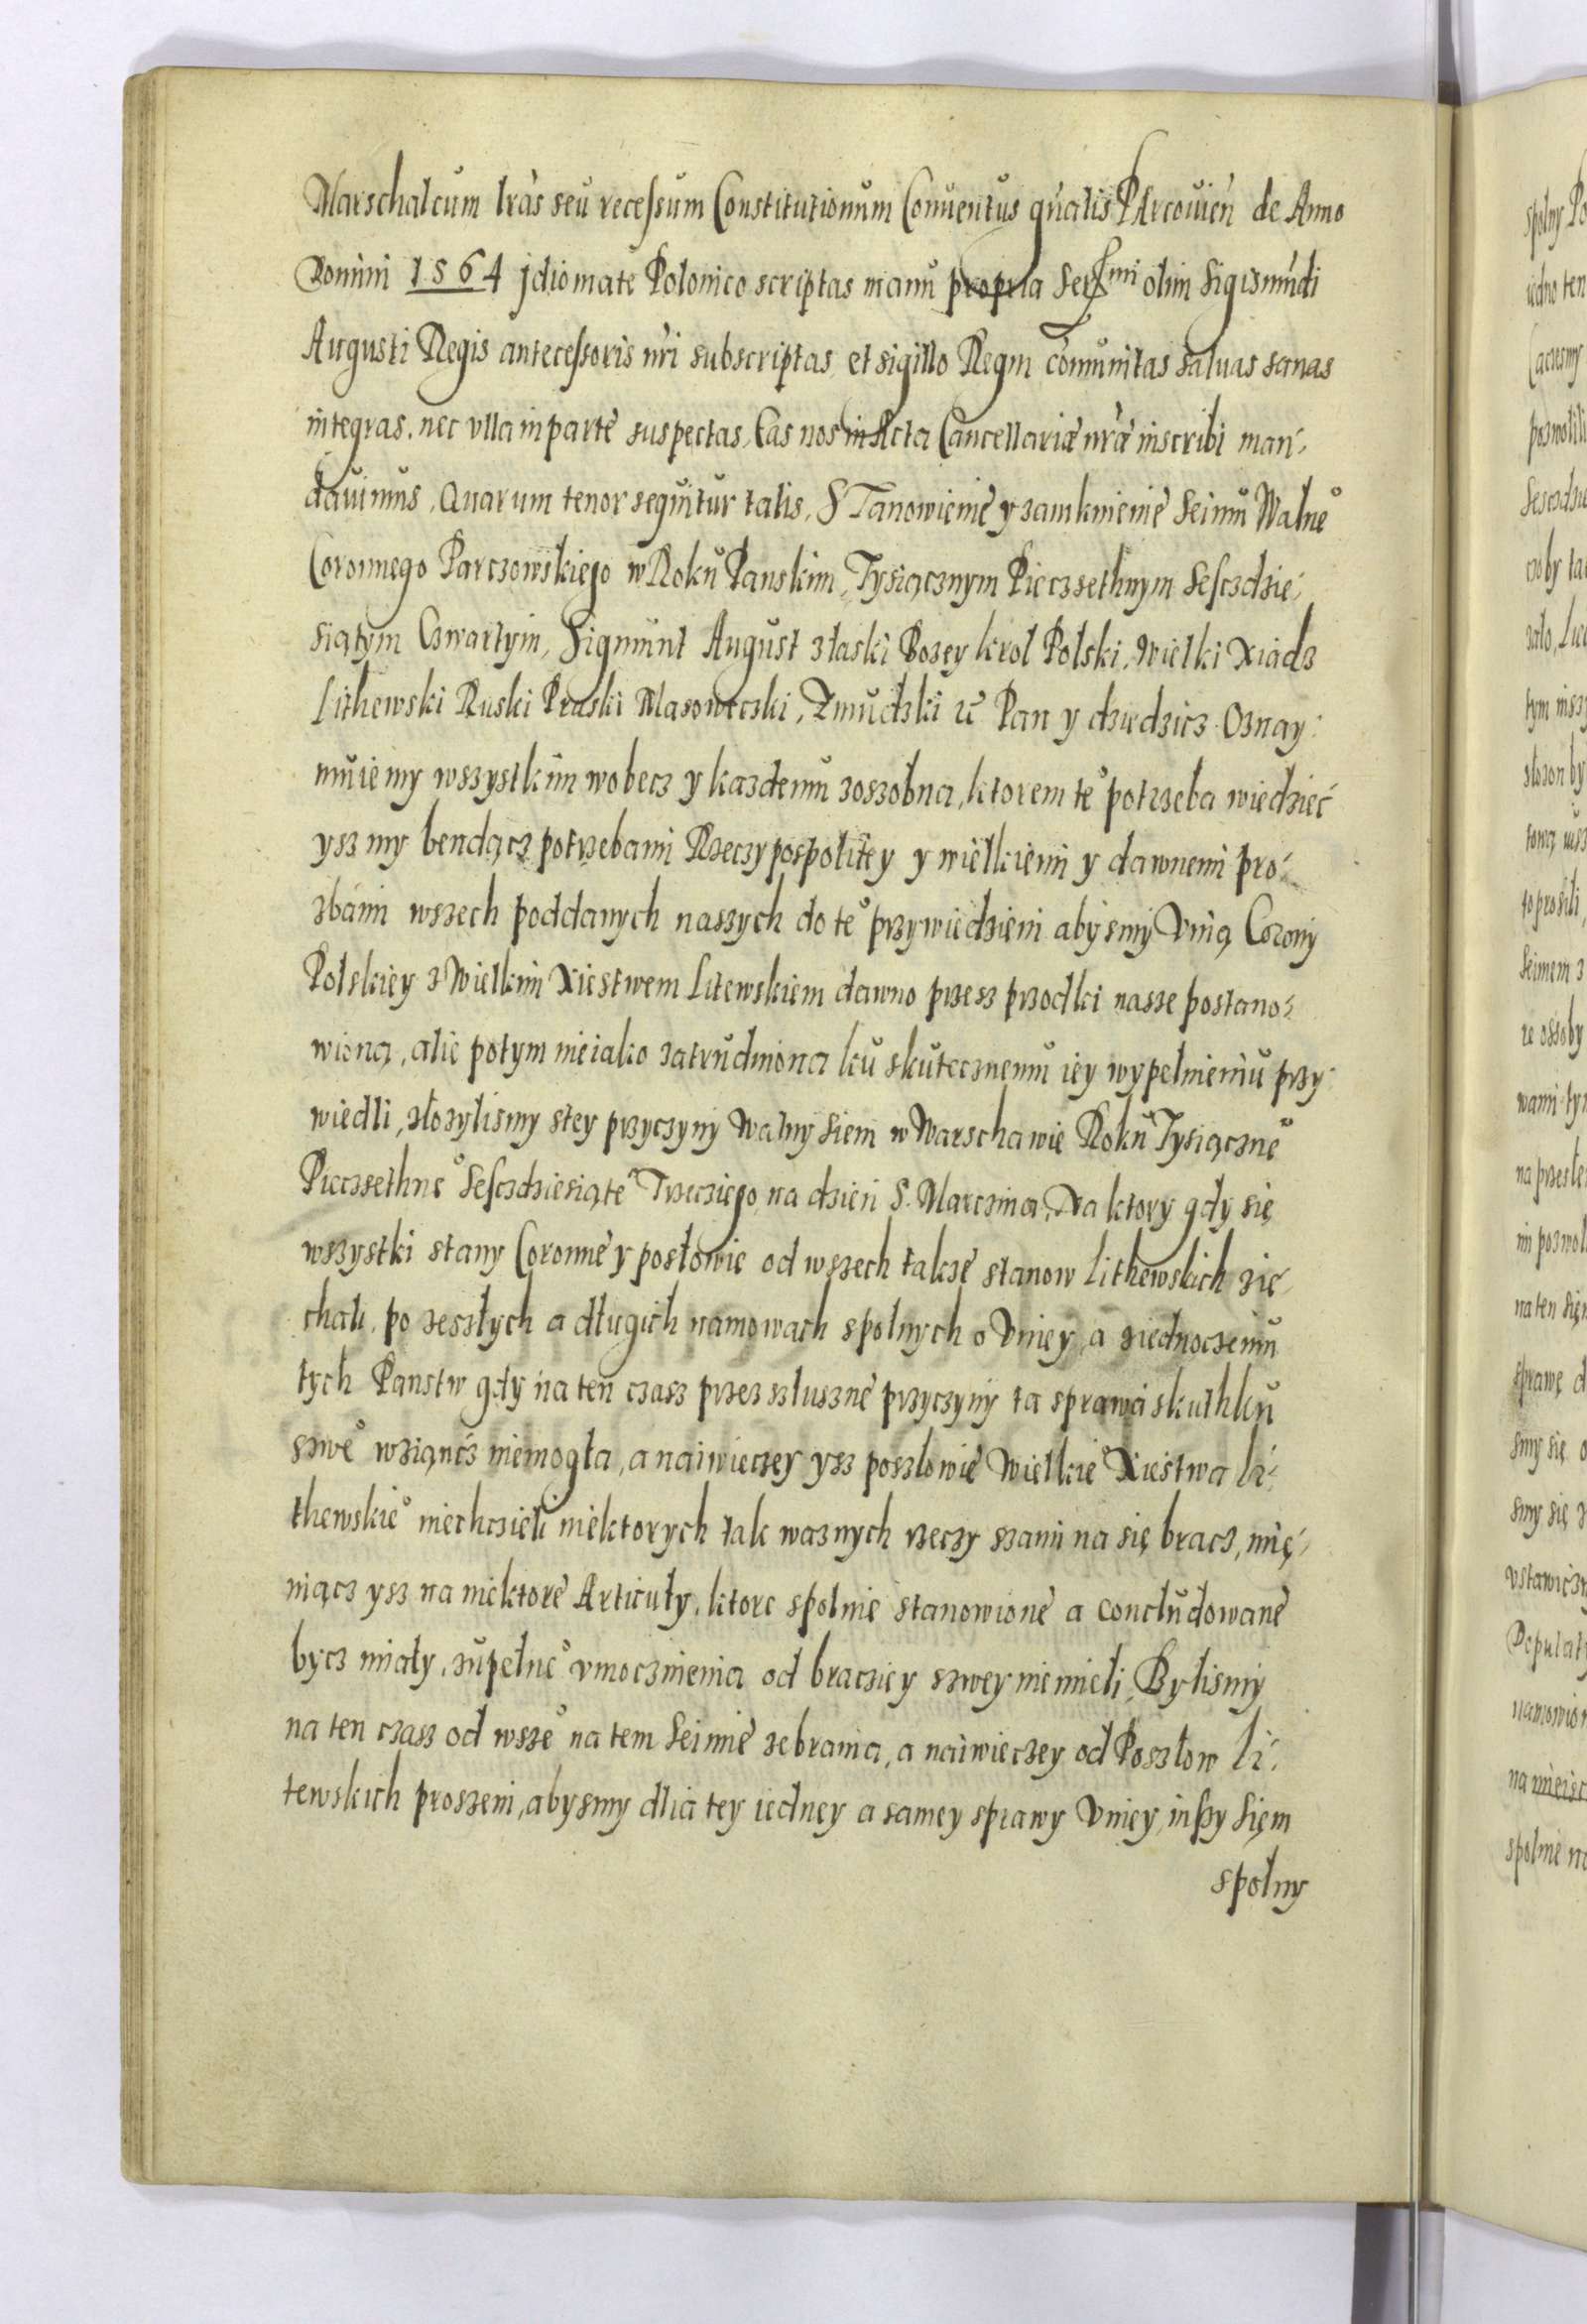 Marschalcum lras seu recessum Constitutionum Conuentus gnalis PArcouien de Anno
Domini 1564 jdiomate Polonico scriptas manu propria Serssmi olim Sigismundi
Augusti Regis antecessoris nri subscriptas, et sigillo Regni comunitas saluas sanas
integras, nec vlla in parte suspectas, Eas nos in Acta Cancellariæ nræ inscribi man-
dauimus, Quarum tenor sequitur talis, STanowienie y zamknienie Seimu Walne°
Coronnego Parczowskiego w Roku Panskim, Tysiącznym Pieczsethnym Sesczdzie-
siątym Czwartym, Sigmunt August złaski Bozey krol Polski, Wielki Xiądz
Lithewski Ruski Pruski Mazoweczki, Zmudzki zc Pan y dziedzicz Oznay-
muiemy wszystkim wobecz y kazdemu zoszobna, ktorem te° potrzeba wiedzieć
ysz my bendącz potrzebami Rzeczypospolitey y wielkiemi y dawnemi pro-
zbami wszech poddanych naszych do te° przywiedzieni abysmy Vnią Corony
Polskiey z Wielkim Xiestwem Litewskiem dawno przesz przodki nasze postano-
wioną, alie potym nieiako zatrudniona ku skutecznemu iey wypelnieniu przy-
wiedli, złozylismy stey przyczyny Walny Siem w Warschawie Roku Tysiączne°
Pieczsethne° Sesczdziesiąte° Trzeciego, na dzień S. Marczina, Na ktory gdy się
wszystki stany Coronne y posłowie od wszech takze stanow Lithewskich zie-
chali, po zeszłych a długich namowach spolnych o Vniey, a ziednoczeniu
tych Panstw gdy na ten czasz przez szluszne przyczyny ta sprawa skuthku
szwe° wziąncz niemogła, a naiwieczey ysz poszlowie Wielkie° Xiestwa Li-
thewskie° niechczieli niektorych tak waznych rzeczy szami na się bracz, mię-
niącz ysz na niektore Articuły, ktore spolnie stanowione a concludowane
bycz miały, zupełne° vmocznienia od braciey szwey nie mieli, Bylismy
na ten czasz od wsze° na tem Seimie zebrania, a naiwieczey od Poszłow Li-
tewskich proszeni, abysmy dlia tey iedney a samey sprawy Vniey, inszy Sięm
spolny